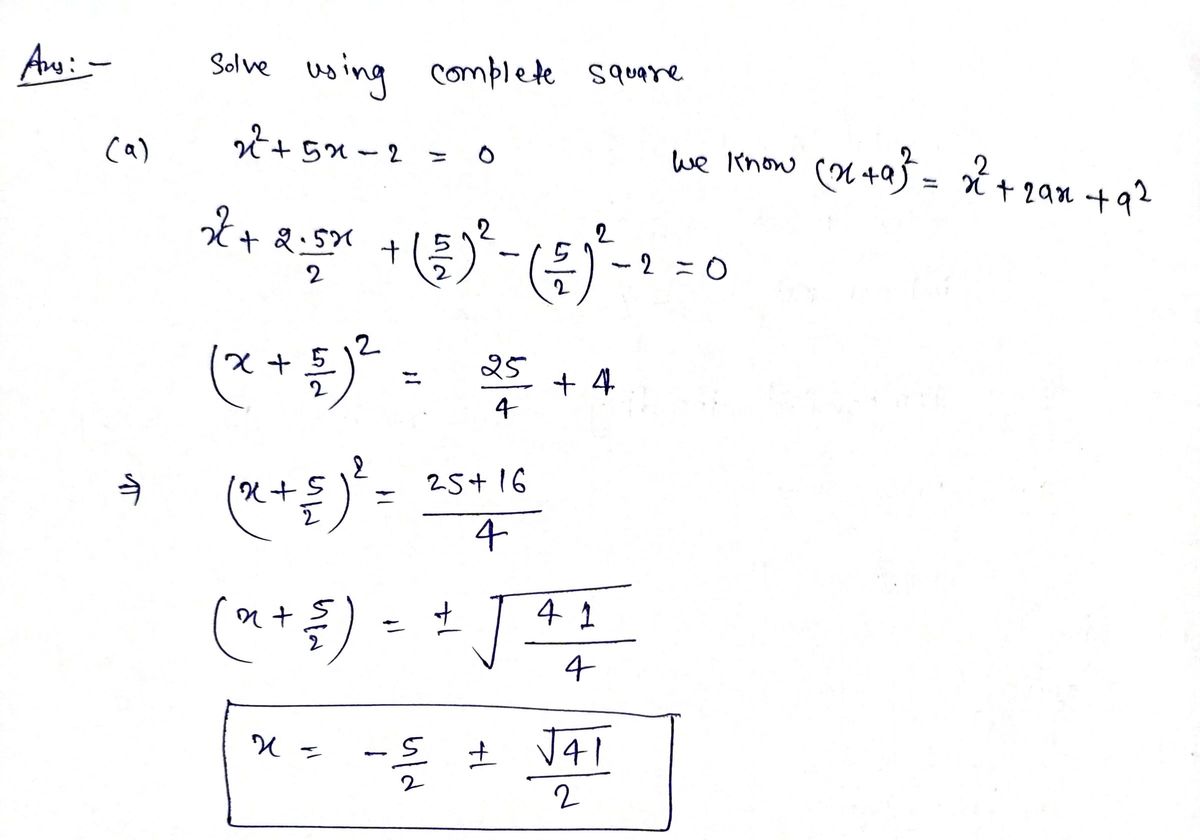 Ans:- Solve using complete square
(a) x² + 5x - 2 = 0 We know (x+a)² = x² + 2ax + a²
x² + 2·5x/2 + (5/2)² - (5/2)² - 2 = 0
(x + 5/2)² = 25/4 + 4
⇒ (x + 5/2)² = (25+16)/4
(x + 5/2) = ± √(41/4)
x = -5/2 ± √41/2